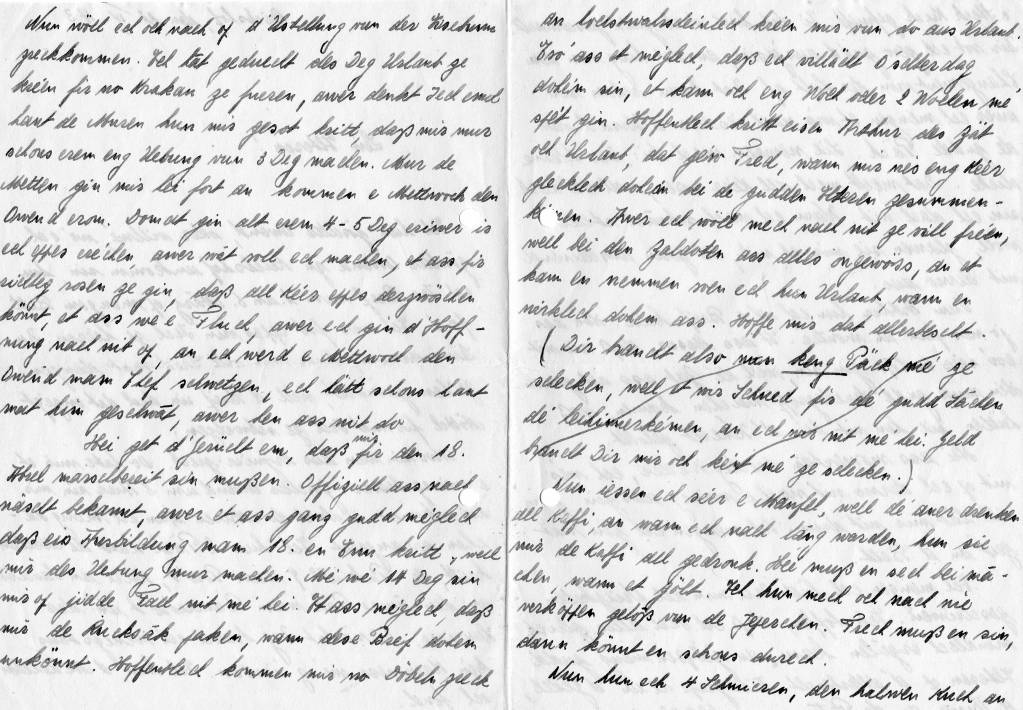 Nun wöll ech och nach op d'Ustellung vun der
zreckkommen. Ech hat geduecht des Deg Urlaub ze
kréen fir no Krakau ze fueren, awer denkt Iech emol
haut de Muren hun mir gesot kritt, daß mir mur
schons erem eng Uebung vun 3 Deg machen. Mur de
Metten gin mir hei fort an kommen e Mettwoch den
Owend erom. Domat gin alt erem 4-5 Deg eriwer is
ech eppes eréchen awer wât woll ech machen, et ass fir
rosen ze gin, daß all Kéer eppes derzwöschen
könnt, et ass wé e Fluch, awer ech gin d'Hoff-
nung nach nit op, an ech werd e Mettwoch den
Owend mam Chef schwetzen, ech hätt schons haut
mat him geschwat, awer hen ass nit do
Hei get d'Gerücht em, daß mir fir den 18.
marschbereit sin mußen. Offiziell ass nach
näscht bekannt, awer et ass gang gudd méglech
daß eis Ausbildung mam 18. en Enn kritt, well
mir des Uebung mur machen. Mé wé 14 Deg sin
mir op jidde Fall nit mé hei. Et ass méglech, daß
mir de Rucksäk paken, wann dese Bréf dohem
unkönnt. Hoffentlech kommen mir no Döbeln zreck
an héchstwahrscheinlech kréen mir vun do aus Urlaub.
Esó ass et méglech, daß ech villäicht Oschterdag
dohém sin, et kann och eng Woch oder 2 Wochen mé
spét gin. Hoffentlech kritt eisen Arthur des Zät
och Urlaub, dat gew Fred, wann mir nés eng Kéer
glecklech dohém bei de gudden Elteren zesummen-
kémen. Awer ech wöll mech nach nit ze vill fréen,
well bei den Zaldoten ass alles ongewöss, an et
kann en nemmen soen ech hun Urlaub, wann en
wirklech dohem ass. Hoffe mir dat allerbescht.
(Dir braucht also mir keng Päck mé ze
schecken, well et wir Schued fir dé gudd Sachen
dé hei kémen, an ech mir nit mé hei. Geld
braucht Dir mir och keint mé ze schecken.)
Nun iessen ech séer e Maufel, well dé aner drenken
all Kaffi, an wann ech nach läng warden, hun sie
mir de Kaffi all gedronk. Hei muß en sech bei mä-
chen, wann et gölt. Ech hun mech och nach nie
verköppen geloß vun de Frech muß en sin,
dann könnt en schons durech.
Nun hun ech 4 Schmiesen, den halwen Kuch an